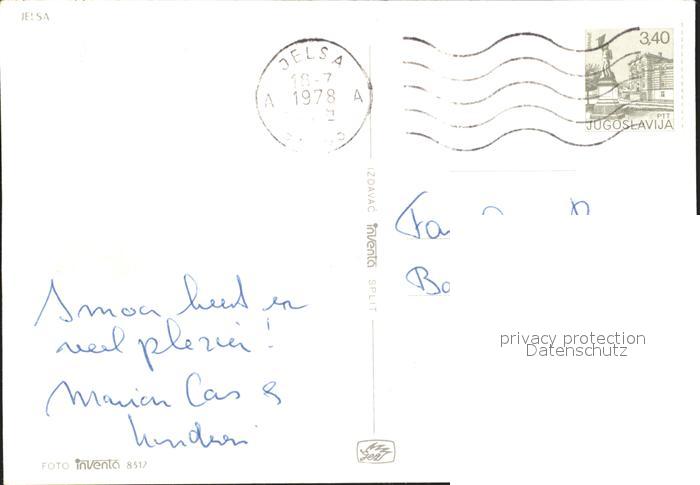 JELSA
JELSA
18-7
A 1978 A
3,40
PTT
JUGOSLAVIJA
IZDAVAČ inventa SPLIT
Fa
Bo
heel en
veel plezier!
Marion Cas &
privacy protection
Datenschutz
FOTO inventa 8517